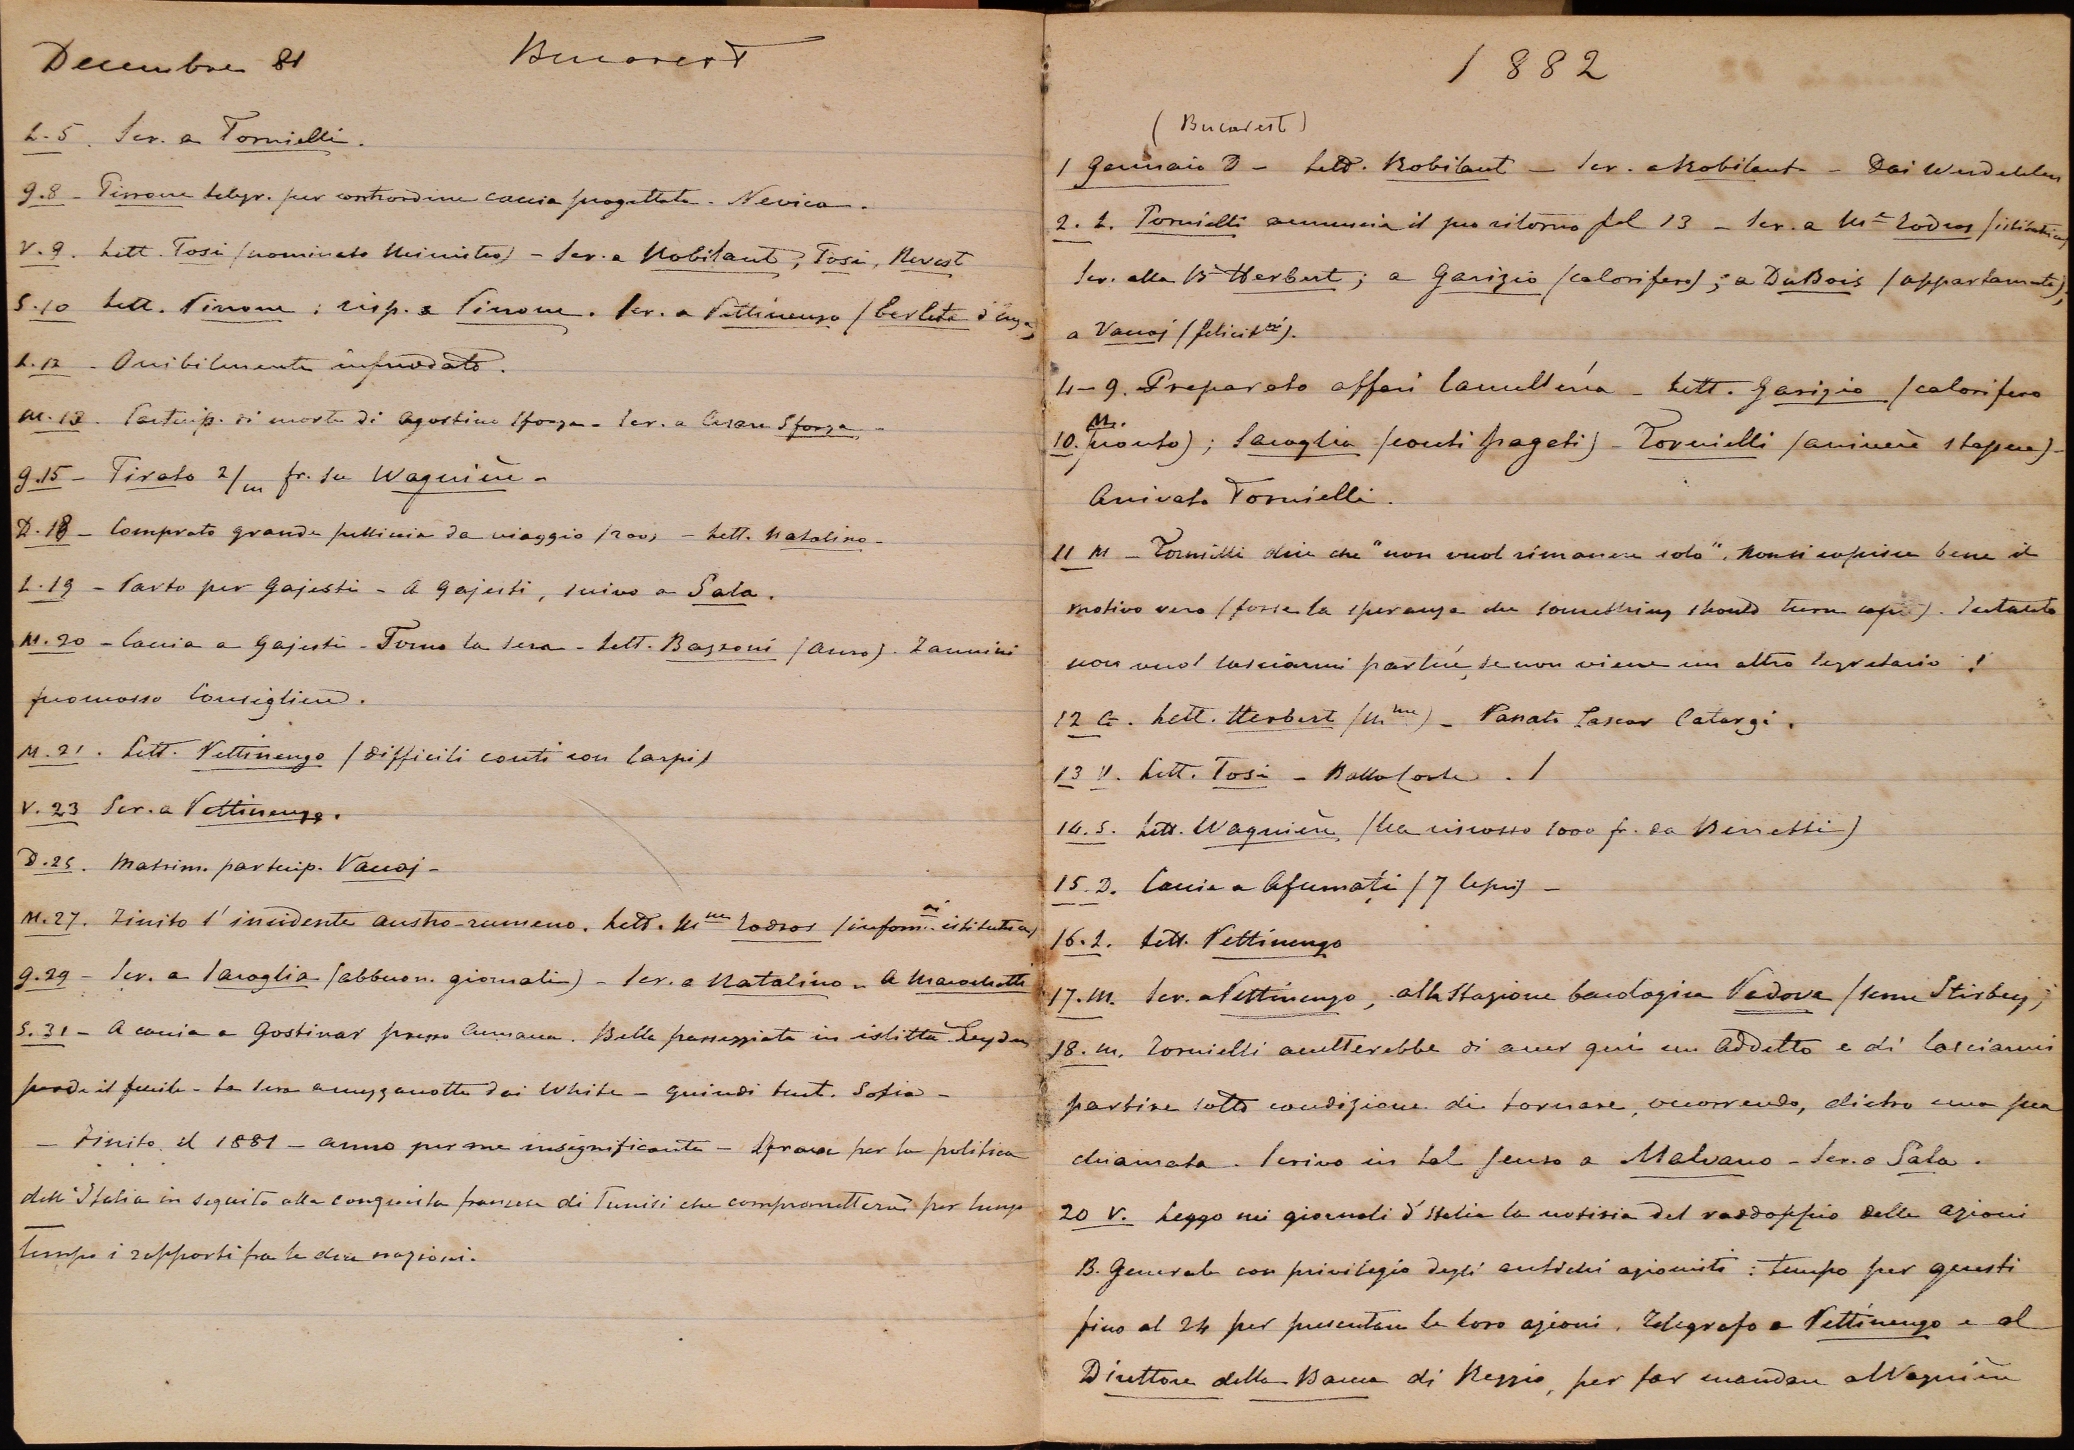 Decembre 81 Bucarest
L. 5. Scr. a Tornielli.
G. 8 - Pirrone telegr. per controordine caccia progettata - Nevica.
V. 9. Lett. Tosi (nominato Ministro) - Scr. a Robilant, Tosi, Revest
S. 10 Lett. Pirrone : risp. a Pirrone. Scr. a Pettinengo (Carletta
L. 12 - Orribilmente infreddato.
M. 13. Partecip. di morte di Agostino Sforza - Scr. a Cesare Sforza -
G. 15 - Tirato 2/m fr. su Wagnière -
D. 18 - Comprato grande pelliccia da viaggio (200) - Lett. Natalino -
L. 19 - Parto per Gajesti - A Gajesti, scrivo a Sala.
M. 20 - Caccia a Gajesti - Torno la sera - Lett. Bazzoni (Auro). Zannini
promosso Consigliere.
M. 21. Lett. Pettinengo (difficili conti con Carpi)
V. 23 Scr. a Pettinengo.
D. 25. Matrim. partecip. Vacaj -
M. 27. Finito l'incidente austro-rumeno. Lett. Mme Rodros (inform.ni istitutrice)
G. 29 - Scr. a Saroglia (abbuon. giornali) - Scr. a Natalino - a Marochetti
S. 31 - A caccia a Gostinar presso Aumana. Bella passeggiata in islitta Leyden
perde il fucile - La sera a mezzanotte dai White - quindi tent. Sofia -
- Finito il 1881 - anno per me insignificante - per la politica
dell'Italia in seguito alla conquista francese di Tunisi che comprometterà per lungo
tempo i rapporti fra le due nazioni.
1882
(Bucarest)
1 Gennaio D - Lett. Robilant - Scr. a Robilant - Dai
2. L. Tornielli annuncia il suo ritorno pel 13 - Scr. a Me Rodros (istitutrice)
Scr. alla Bne Herbert; a Garizio (calorifero); a DuBois (appartamento);
a Vacaj (felicit.ni).
4-9. Preparato affari Cancelleria - Lett. Garizio (calorifero
10. M. pronto); Saroglia (conti pagati) - Tornielli (arriverà stasera) -
Arrivato Tornielli.
11 M - Tornielli dice che "non vuol rimanere solo". Non si capisce bene il
motivo vero (forse la speranza che something should turn up). Intanto
non vuol lasciarmi partire, se non viene un altro segretario !
12 G. Lett. Herbert (Mme) - Pranzo Lascar Catargi.
13 V. Lett. Tosi - Ballo Corte. /
14. S. Lett. Wagnière (ha riscosso 1000 fr. da Berretti)
15. D. Caccia a Afumați (7 lepri) -
16. L. Lett. Pettinengo
17. M. Scr. a Pettinengo, alla Stazione bacologica Padova (seme Stirbey)
18. M. Tornielli accetterebbe di aver qui un addetto e di lasciarmi
partire sotto condizione di tornare, occorrendo, dietro una sua
chiamata. Scrivo in tal senso a Malvano - Scr. a Sala.
20 V. Leggo nei giornali d'Italia la notizia del raddoppio delle azioni
B. Generale con privilegio degli antichi azionisti : tempo per questi
fino al 24 per presentare le loro azioni. Telegrafo a Pettinengo e al
Direttore della Banca di Reggio, per far mandare al Wagnière